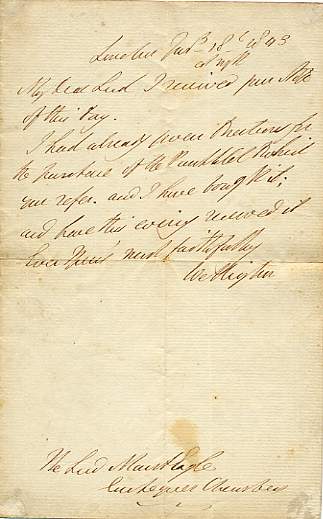 London Feb 18 1843
at night
My dear Lord I received your Note
of this day.
I had already given Directions for
the purchase of the Pamphlet to which
you refer. and I have bought it;
and have this evening received it
Ever Yours most faithfully
Wellington
The Lord Mount Eagle
Exchequer Chambers